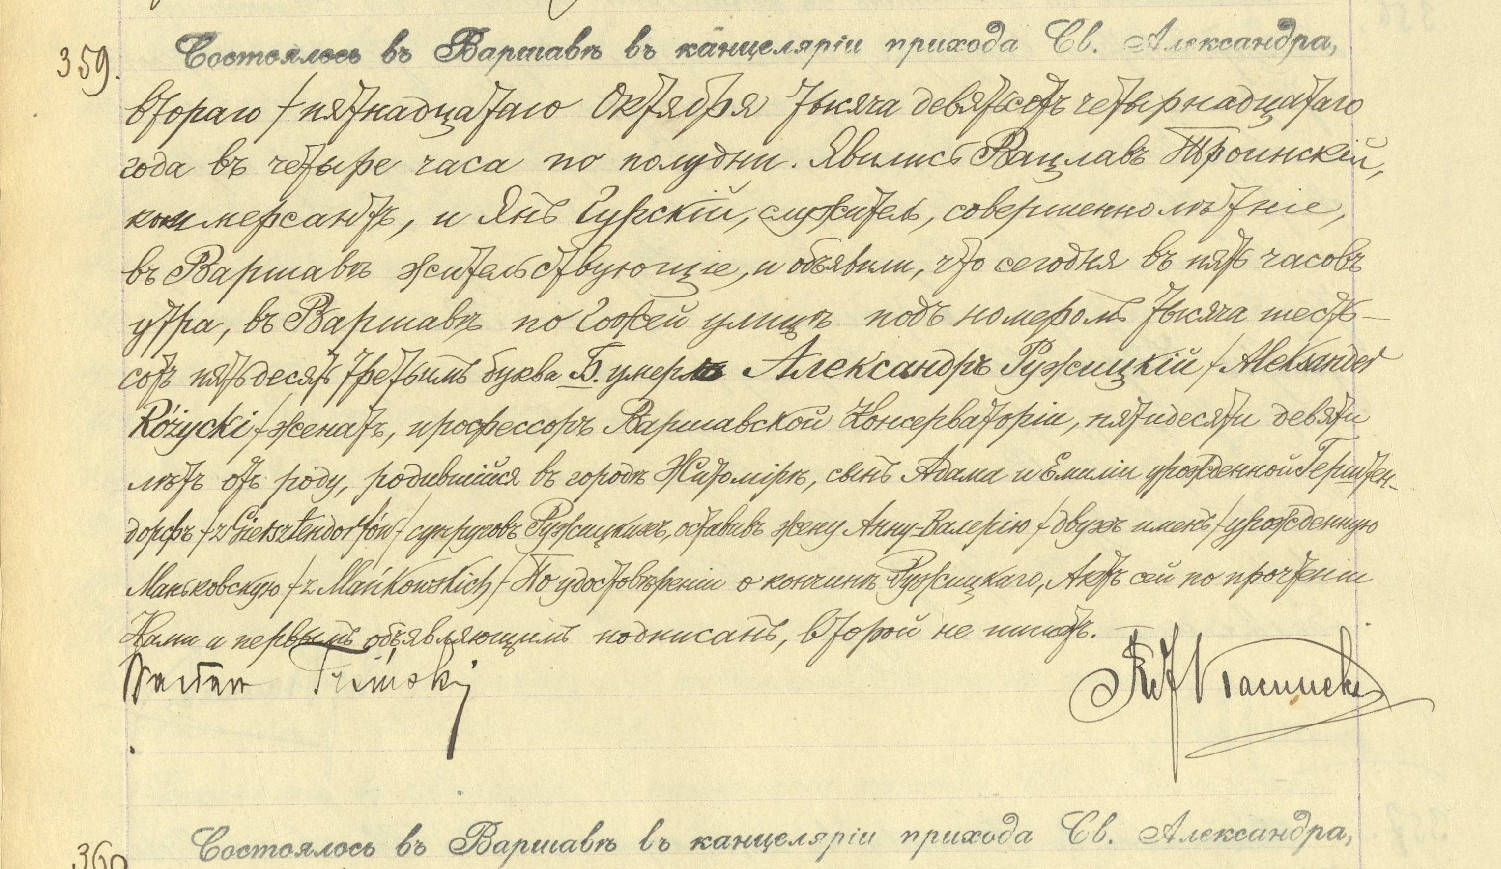 359. Состоялось въ Варшавѣ въ канцеляріи прихода Св. Александра,
втораго / пятнадцатаго Октября тысяча девятьсотъ четырнадцатаго
года въ четыре часа по полудни. Явились Вацлавъ Троинскій,
коммерсантъ, и Янъ Гурскій, служитель, совершеннолѣтніе,
въ Варшавѣ жительствующіе, и объявили, что сегодня въ пять часовъ
утра, въ Варшавѣ по Гожей улицѣ подъ номеромъ тысяча шесть-
сотъ пятьдесятъ третьимъ буква Б. умеръ Александръ Ружицкій / Aleksander
Różycki / женатъ, профессоръ Варшавской Консерваторіи, пятидесяти девяти
лѣтъ отъ роду, родившійся въ городѣ Житомірѣ, сынъ Адама и Емиліи урожденной Герштен-
дорфъ / z Giersztendorfów / супруговъ Ружицкихъ, оставивъ жену Анну-Валерію / двухъ именъ / урожденную
Маньковскую / z Mańkowskich / По удостовѣреніи о кончинѣ Ружицкаго, Актъ сей по прочтеніи
Нами и первымъ объявляющимъ подписанъ, второй не пишетъ.
360 Состоялось въ Варшавѣ въ канцеляріи прихода Св. Александра,